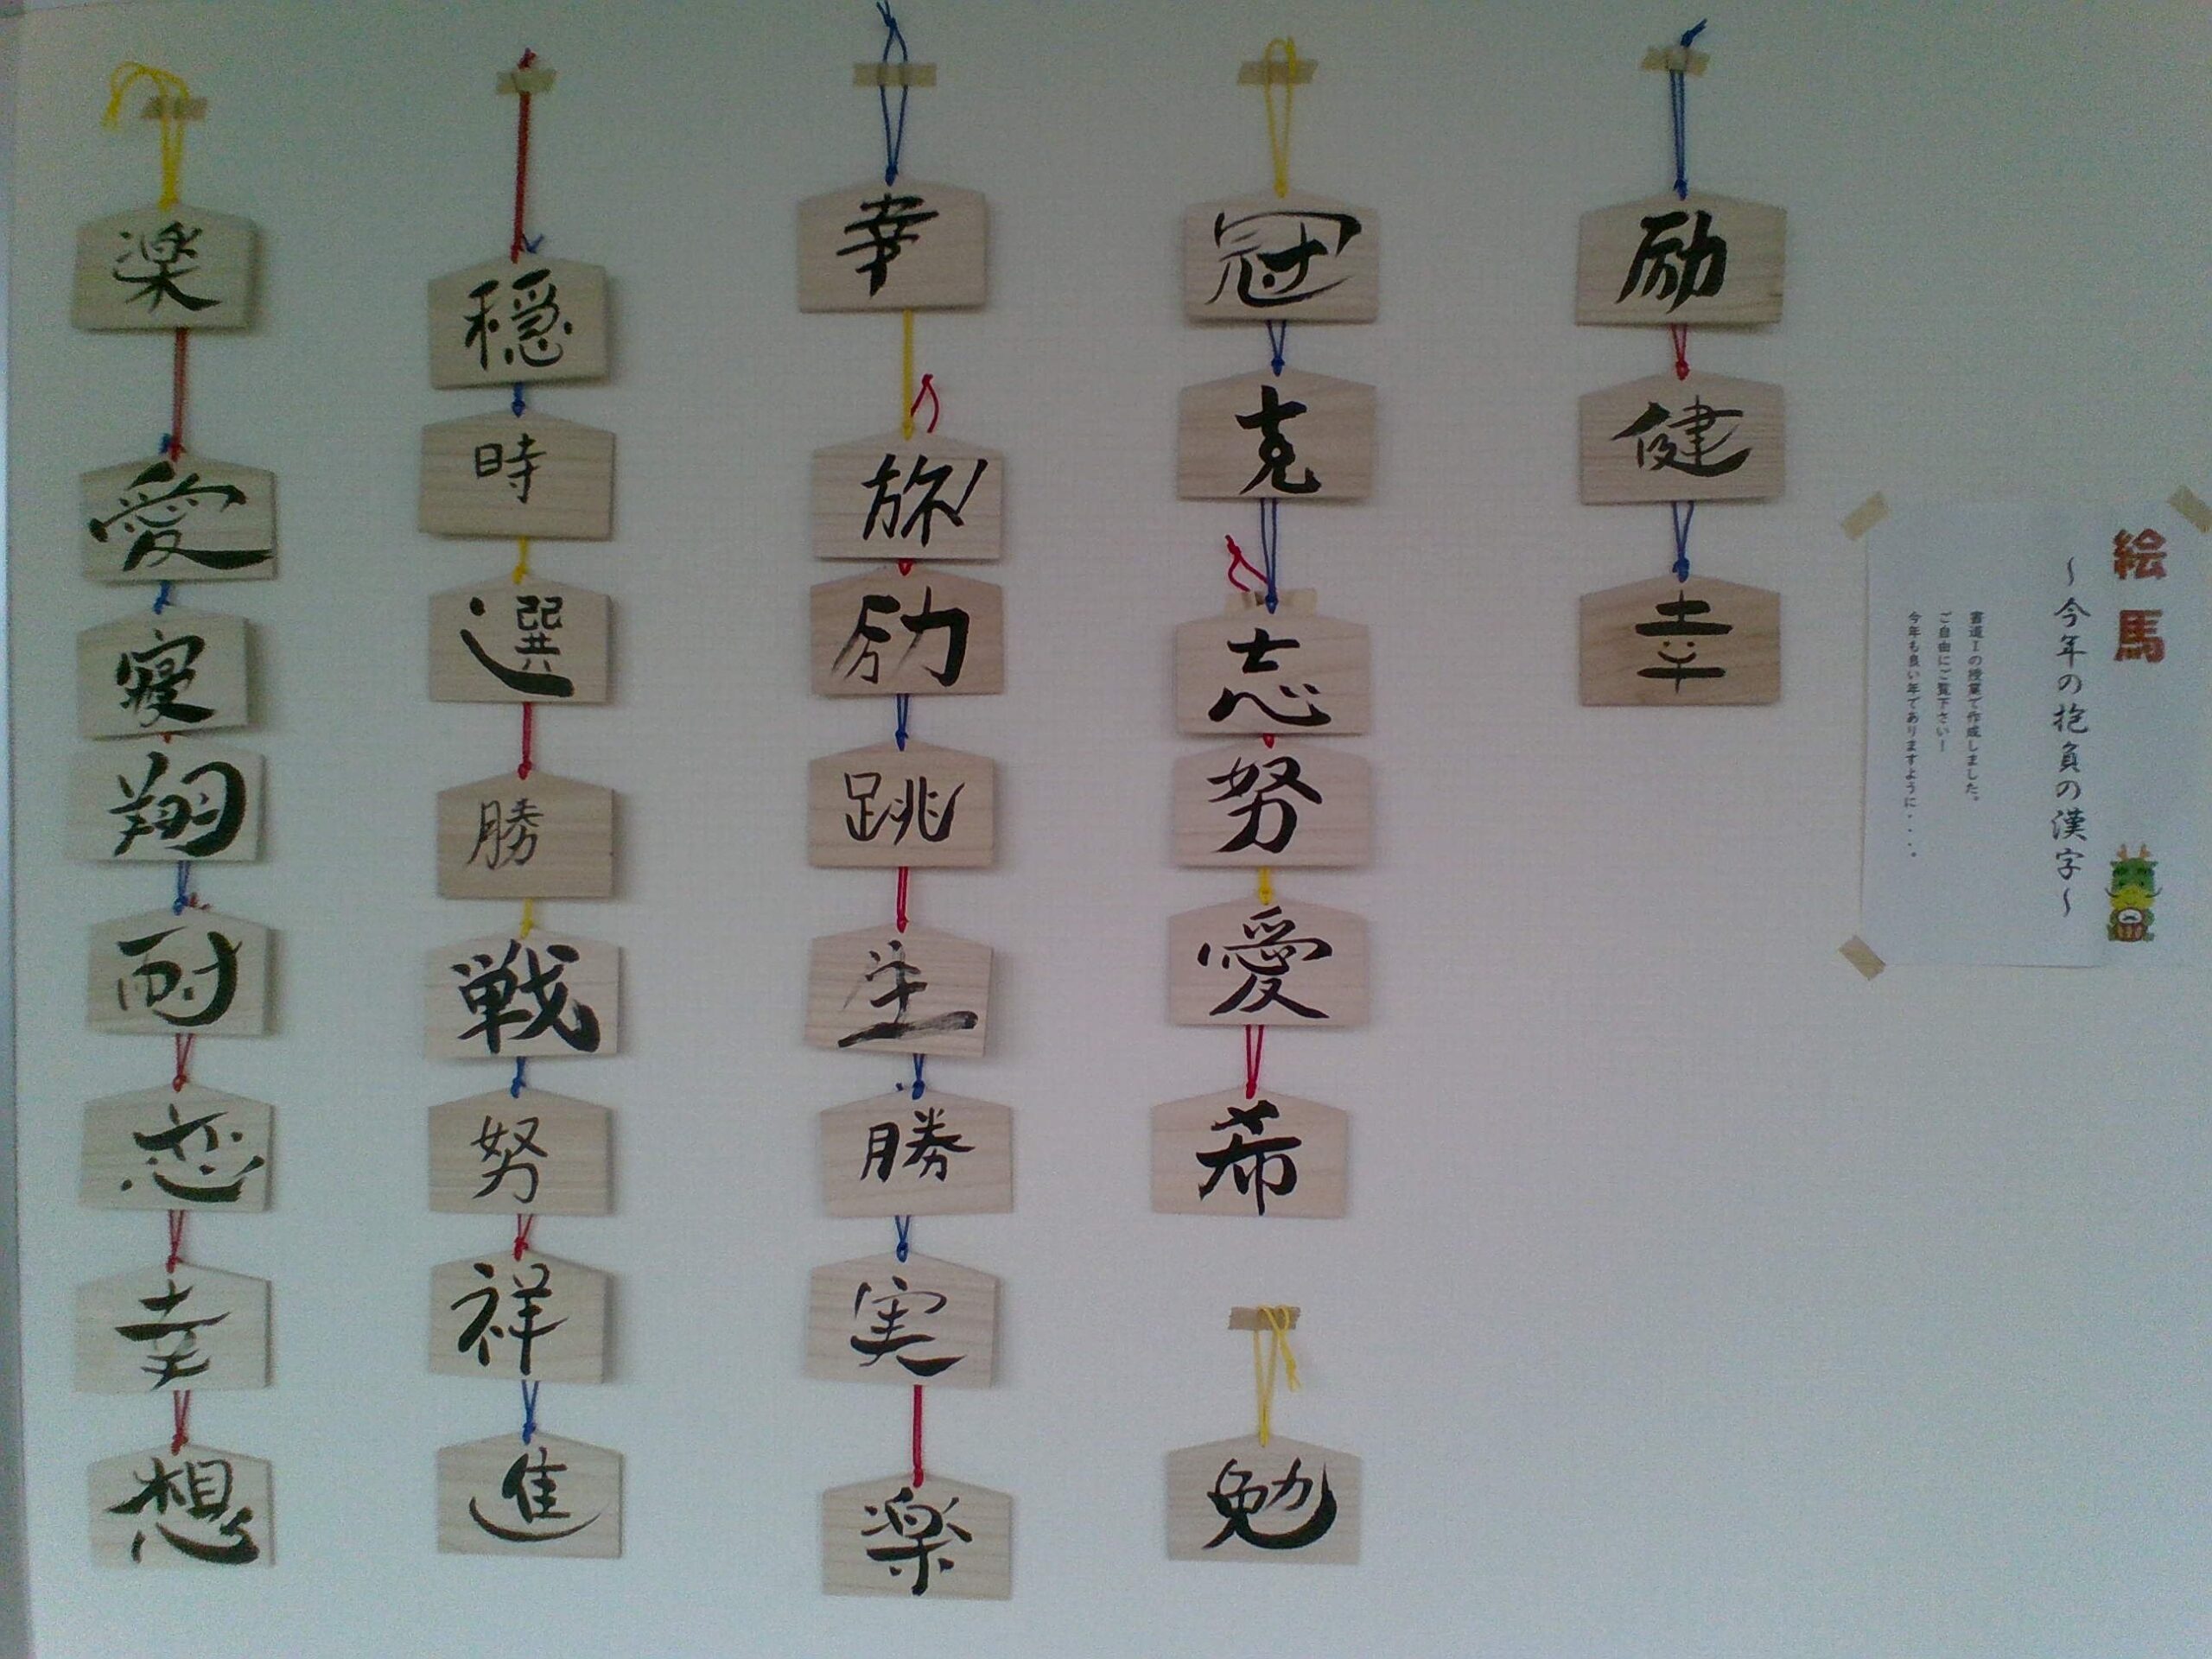 絵馬
～今年の抱負の漢字～
書道Ⅰの授業で作成しました。
ご自由にご覧下さい！
今年も良い年でありますように・・・。
励
健
幸
冠
克
志
努
愛
希
勉
幸
旅
励
跳
生
勝
実
楽
穏
時
選
勝
戦
努
祥
進
楽
愛
寝
翔
耐
恋
幸
想